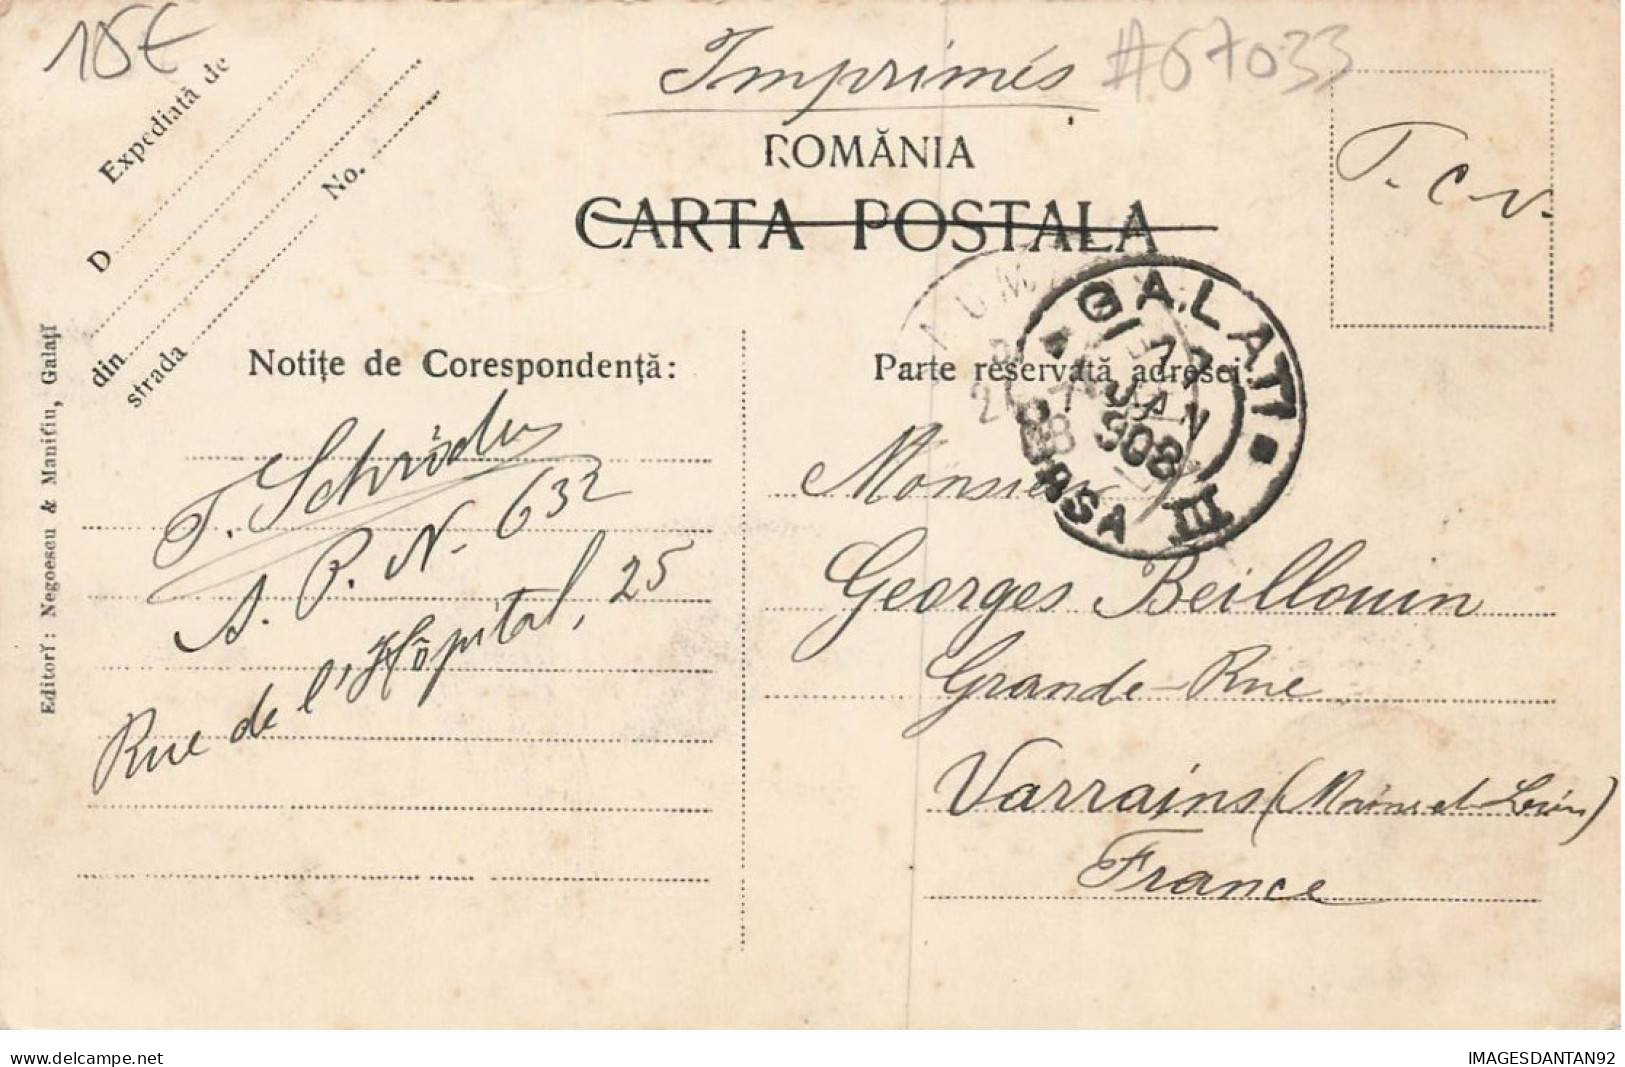 15€
Imprimés #67033
ROMÂNIA
CARTA POSTALA
T. C. V.
Expediată de
D
din
strada
No.
GALATI
17
JAN
908
BURSA III
Notițe de Corespondență:
Parte reservată adresei:
T. Schröder
A. P. N. 632
Rue de l'Hôpital, 25
Monsieur
Georges Beillouin
Grande-Rue
Varrains (Maine et Loire)
France
Editorĭ: Negoescu & Manifiu, Galațĭ
delcampe.net
IMAGESDANTAN92